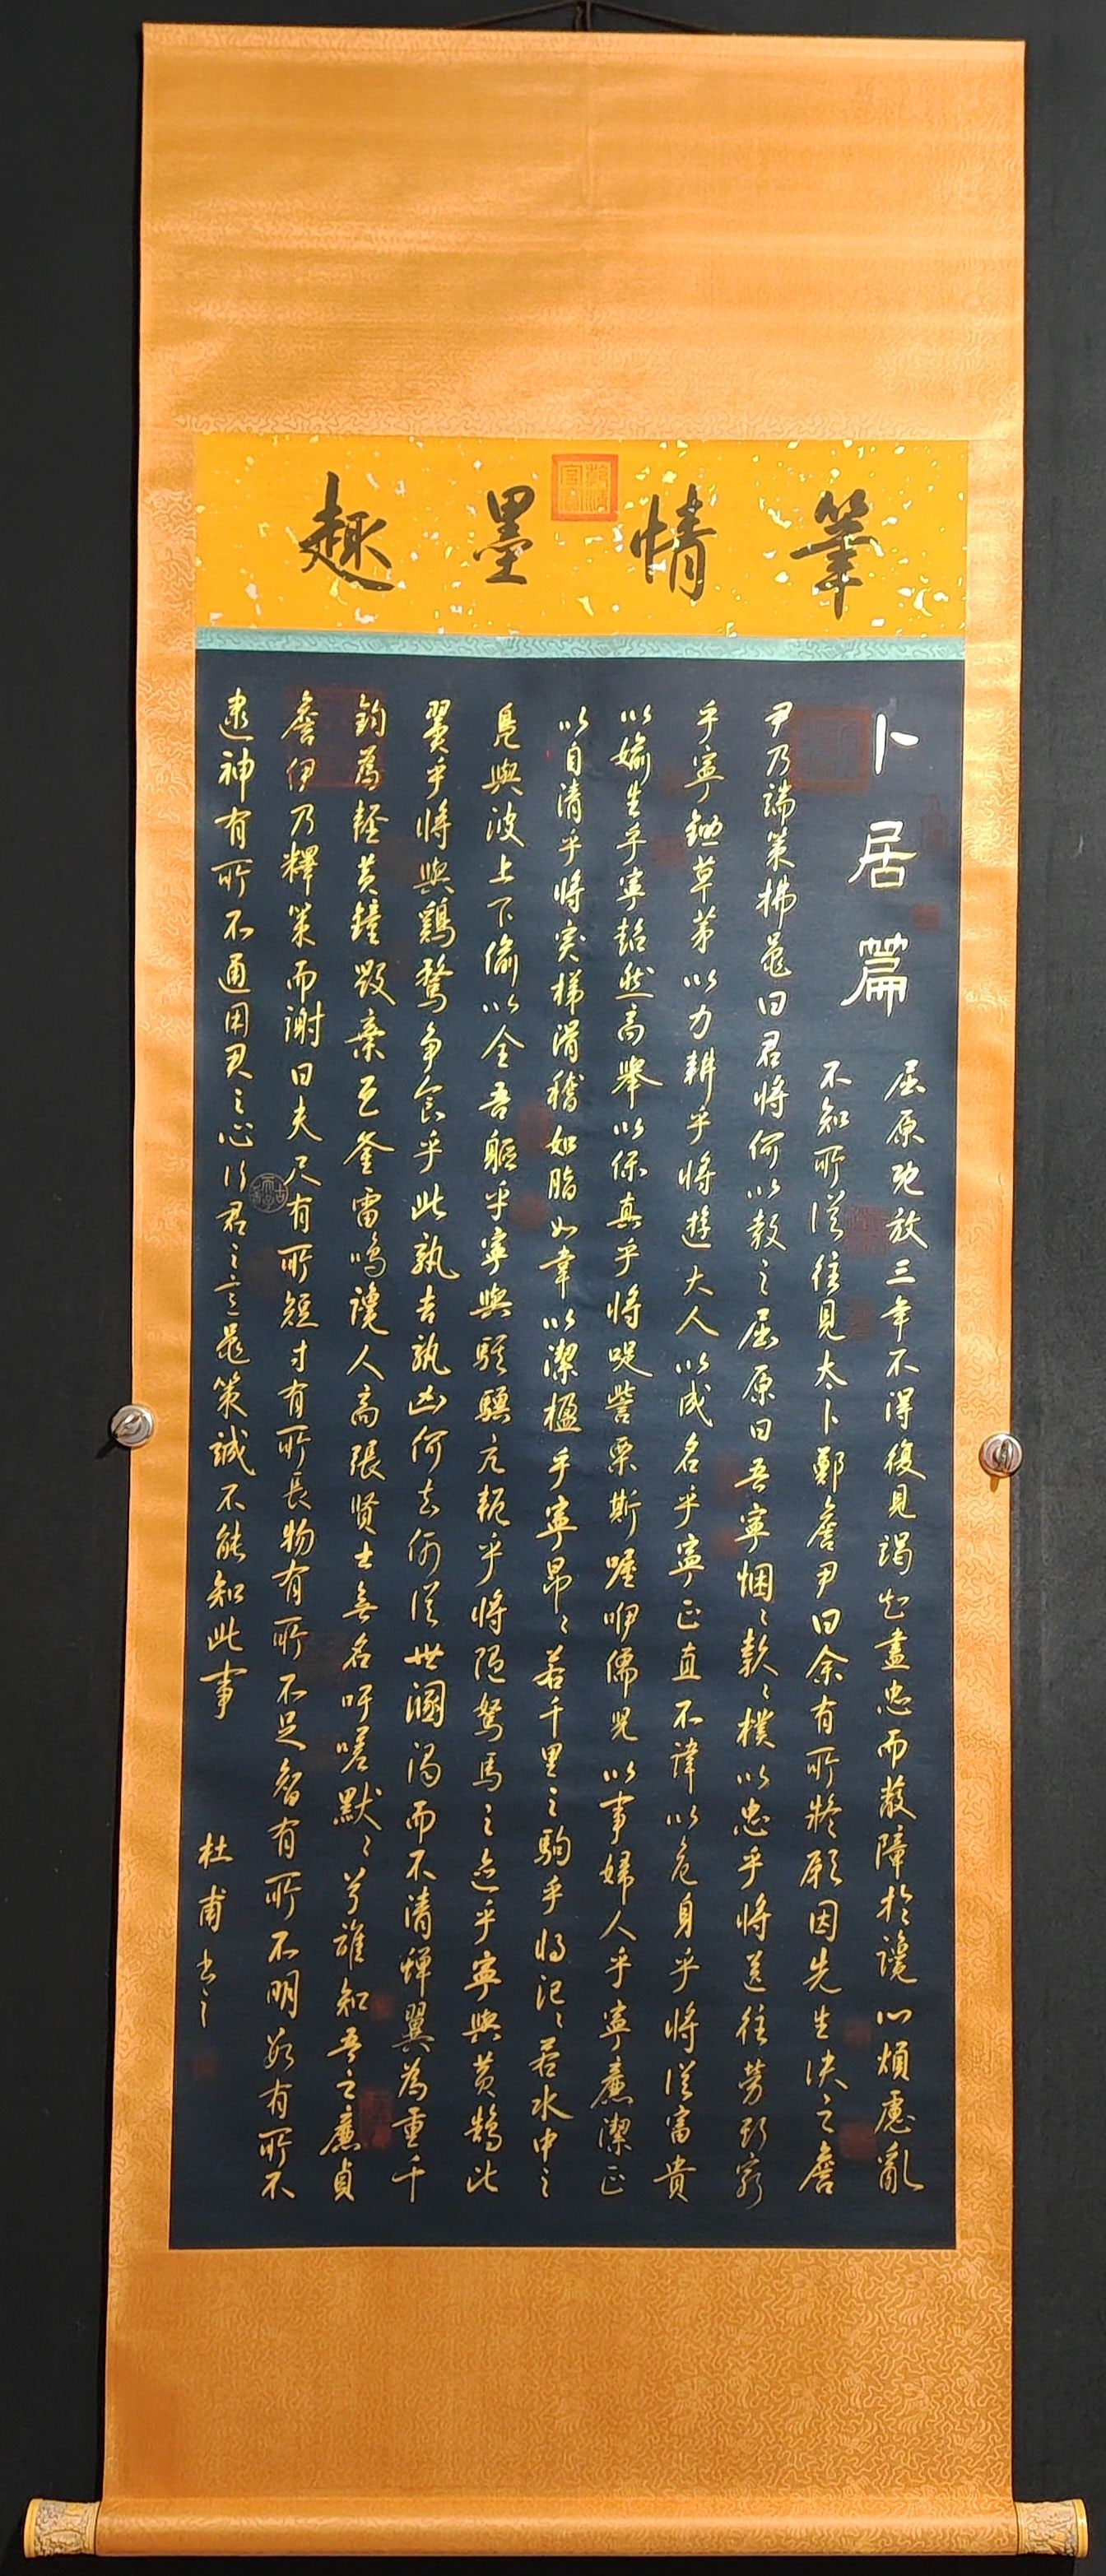 筆情墨趣
卜居篇
屈原既放三年不得復見竭知盡忠而蔽障於讒心煩慮亂
不知所從往見太卜鄭詹尹曰余有所疑願因先生決之詹
尹乃端策拂龜曰君將何以教之屈原曰吾寧悃〻款〻樸以忠乎將送往勞斯窮
乎寧鋤草茅以力耕乎將遊大人以成名乎寧正直不諱以危身乎將從富貴
以媮生乎寧超然高舉以保真乎將哫訾栗斯喔咿儒兒以事婦人乎寧廉潔正
以自清乎將突梯滑稽如脂如韋以潔楹乎寧昂〻若千里之駒乎將氾〻若水中之
鳧與波上下偷以全吾軀乎寧與騏驥亢軛乎將隨駑馬之迹乎寧與黃鵠比
翼乎將與鷄鶩爭食乎此孰吉孰凶何去何從世溷濁而不清蟬翼為重千
鈞為輕黃鐘毀棄瓦釜雷鳴讒人高張賢士無名吁嗟默〻兮誰知吾之廉貞
詹伊乃釋策而謝曰夫尺有所短寸有所長物有所不足智有所不明數有所不
逮神有所不通用君之心行君之意龜策誠不能知此事
杜甫書之